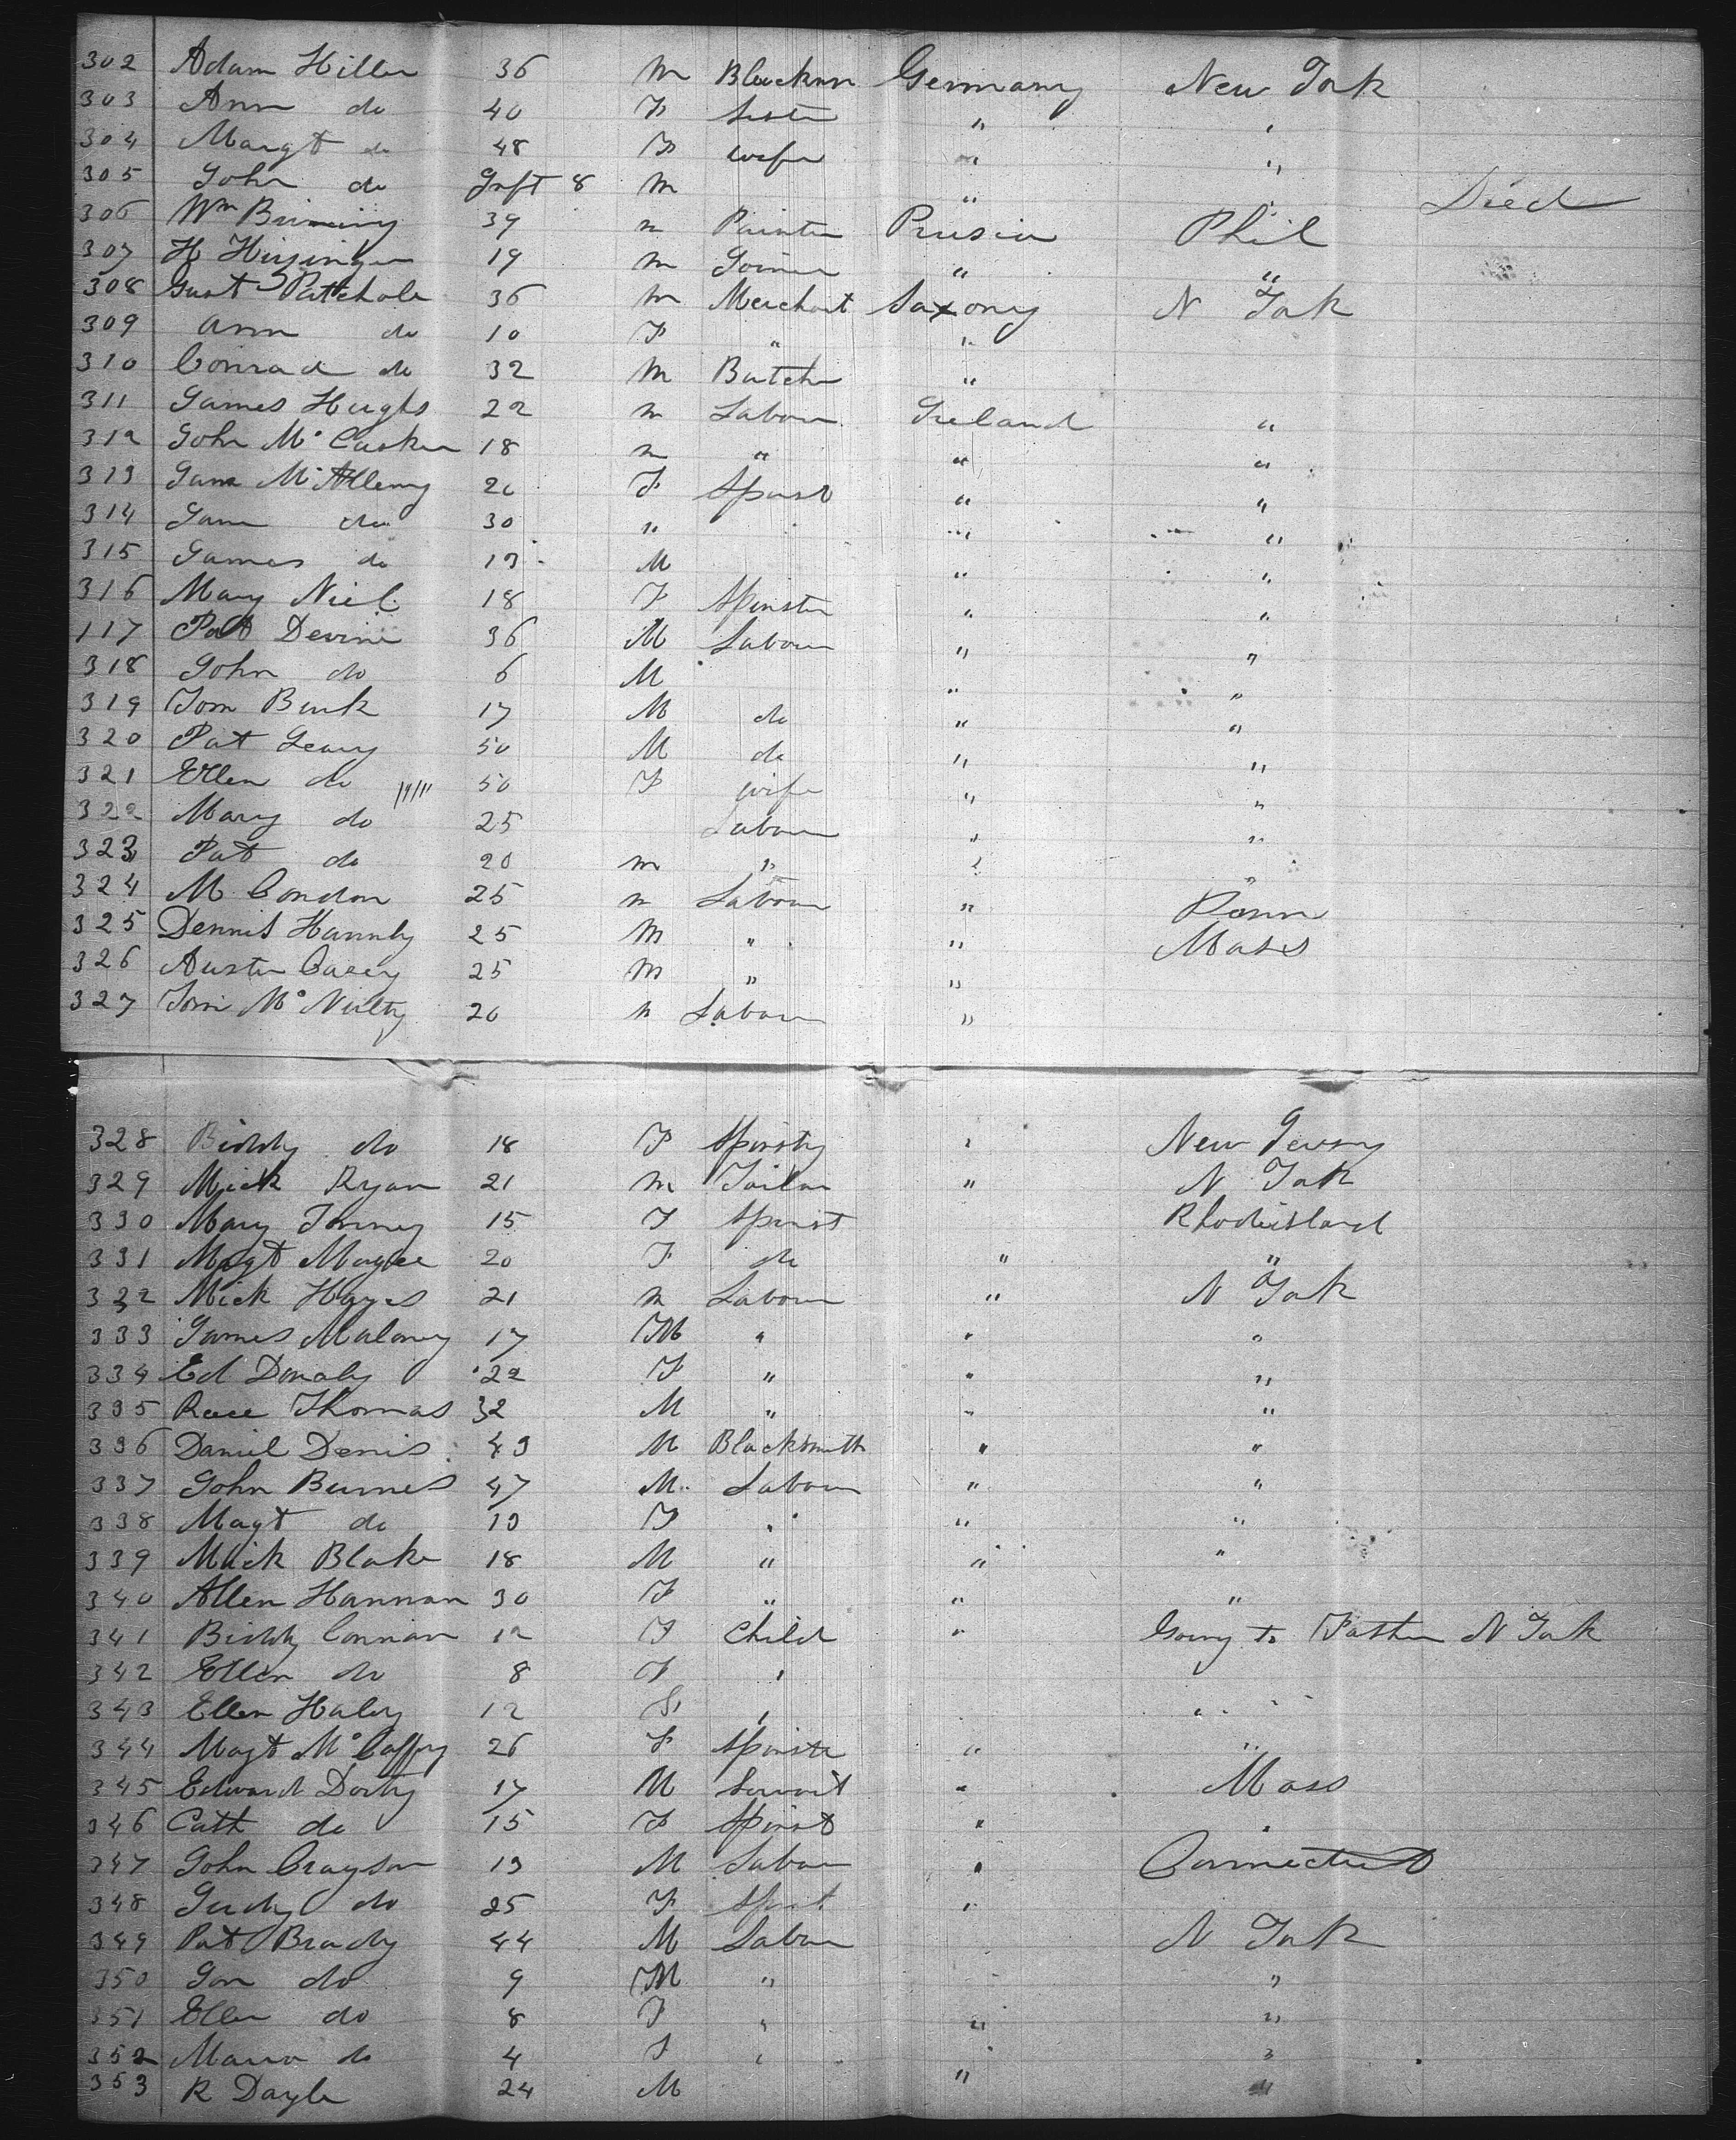 302 Adam Hiller 36 M Blacksm Germany New York
303 Ann do 40 F Sister " "
304 Margt do 48 F wife " "
305 John do Inft 8 M " " Died
306 Wm Brining 39 m Painter Prusia Phil
307 H Hirsinger 19 m Joiner " "
308 Gust Patchole 36 m Merchant Saxony N York
309 Ann do 10 F " "
310 Conrad do 32 M Butcher "
311 James Hughs 22 m Labour Ireland "
312 John Mc Casker 18 m " " "
313 Jane McAlleny 20 F Spinst " "
314 Jane do 30 " " "
315 James do 13 M " "
316 Mary Niel 18 F Spinster " "
117 Pat Devine 36 M Labour " "
318 John do 6 M " "
319 Tom Burk 17 M do " "
320 Pat Leary 50 M do " "
321 Ellen do 50 F wife " "
322 Mary do 25 Labour " "
323 Pat do 20 m " " "
324 M Condon 25 m Labour " Penn
325 Dennis Hannly 25 M " " Mass
326 Austin Casey 25 M " "
327 Tom Mc Nulty 20 m Labour "
328 Biddy do 18 F Spinstr " New Jersey
329 Mick Ryan 21 m Tailor " N York
330 Mary Torney 15 F Spinst Rhodeisland
331 Magt Magee 20 F do " "
332 Mick Hayes 21 m Labour " N York
333 James Maloney 17 M " " "
334 Ed Donaly 22 F " " "
335 Reece Thomas 32 M " " "
336 Daniel Denis 43 M Blacksmith " "
337 John Burnes 47 M Labour " "
338 Magt do 13 F " " "
339 Mick Blake 18 M " " "
340 Allen Hannan 30 F " " "
341 Biddy Connan 12 F Child " Going to Father N York
342 Ellen do 8 F "
343 Ellen Haley 12 F " "
344 Magt Mc Caffry 26 F Spinster " "
345 Edward Dorty 17 M Servant " Mass
346 Cath do 15 F Spinst " "
347 John Crayson 13 M Labour " Connecticut
348 Judy do 25 F Spinst "
349 Pat Brady 44 M Labour N York
350 Jon do 9 M " "
351 Ellen do 8 F " " "
352 Maria do 4 F " " "
353 R Dayle 24 M " "